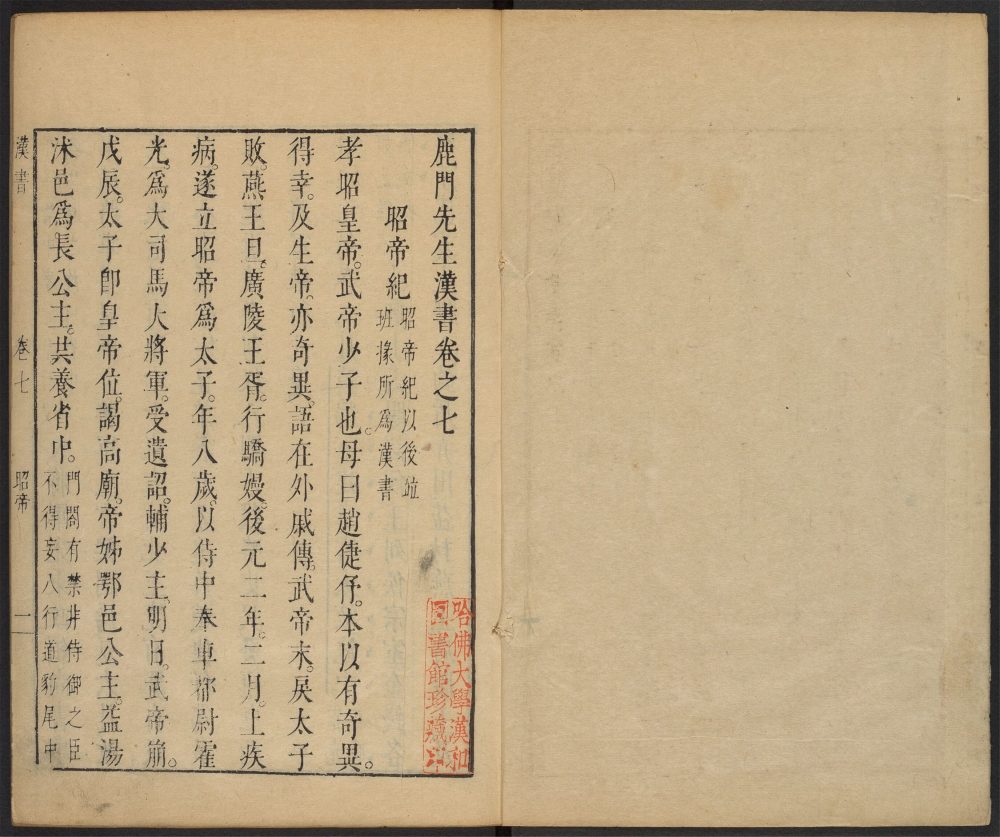 鹿門先生漢書卷之七
昭帝紀
昭帝紀以後竝
班掾所爲漢書
孝昭皇帝。武帝少子也。母曰趙倢伃。本以有奇異。
得幸。及生帝。亦奇異。語在外戚傳。武帝末。戾太子
敗。燕王旦。廣陵王胥。行驕嫚。後元二年。二月。上疾
病。遂立昭帝爲太子。年八歲。以侍中奉車都尉霍
光。爲大司馬大將軍。受遺詔。輔少主。明日。武帝崩。
戊辰。太子卽皇帝位。謁高廟。帝姊鄂邑公主。益湯
沐邑爲長公主。共養省中。
門閤有禁非侍御之臣
不得妄入行道豹尾中
漢書
卷七
昭帝
一
哈佛大學漢和
圖書館珍藏印